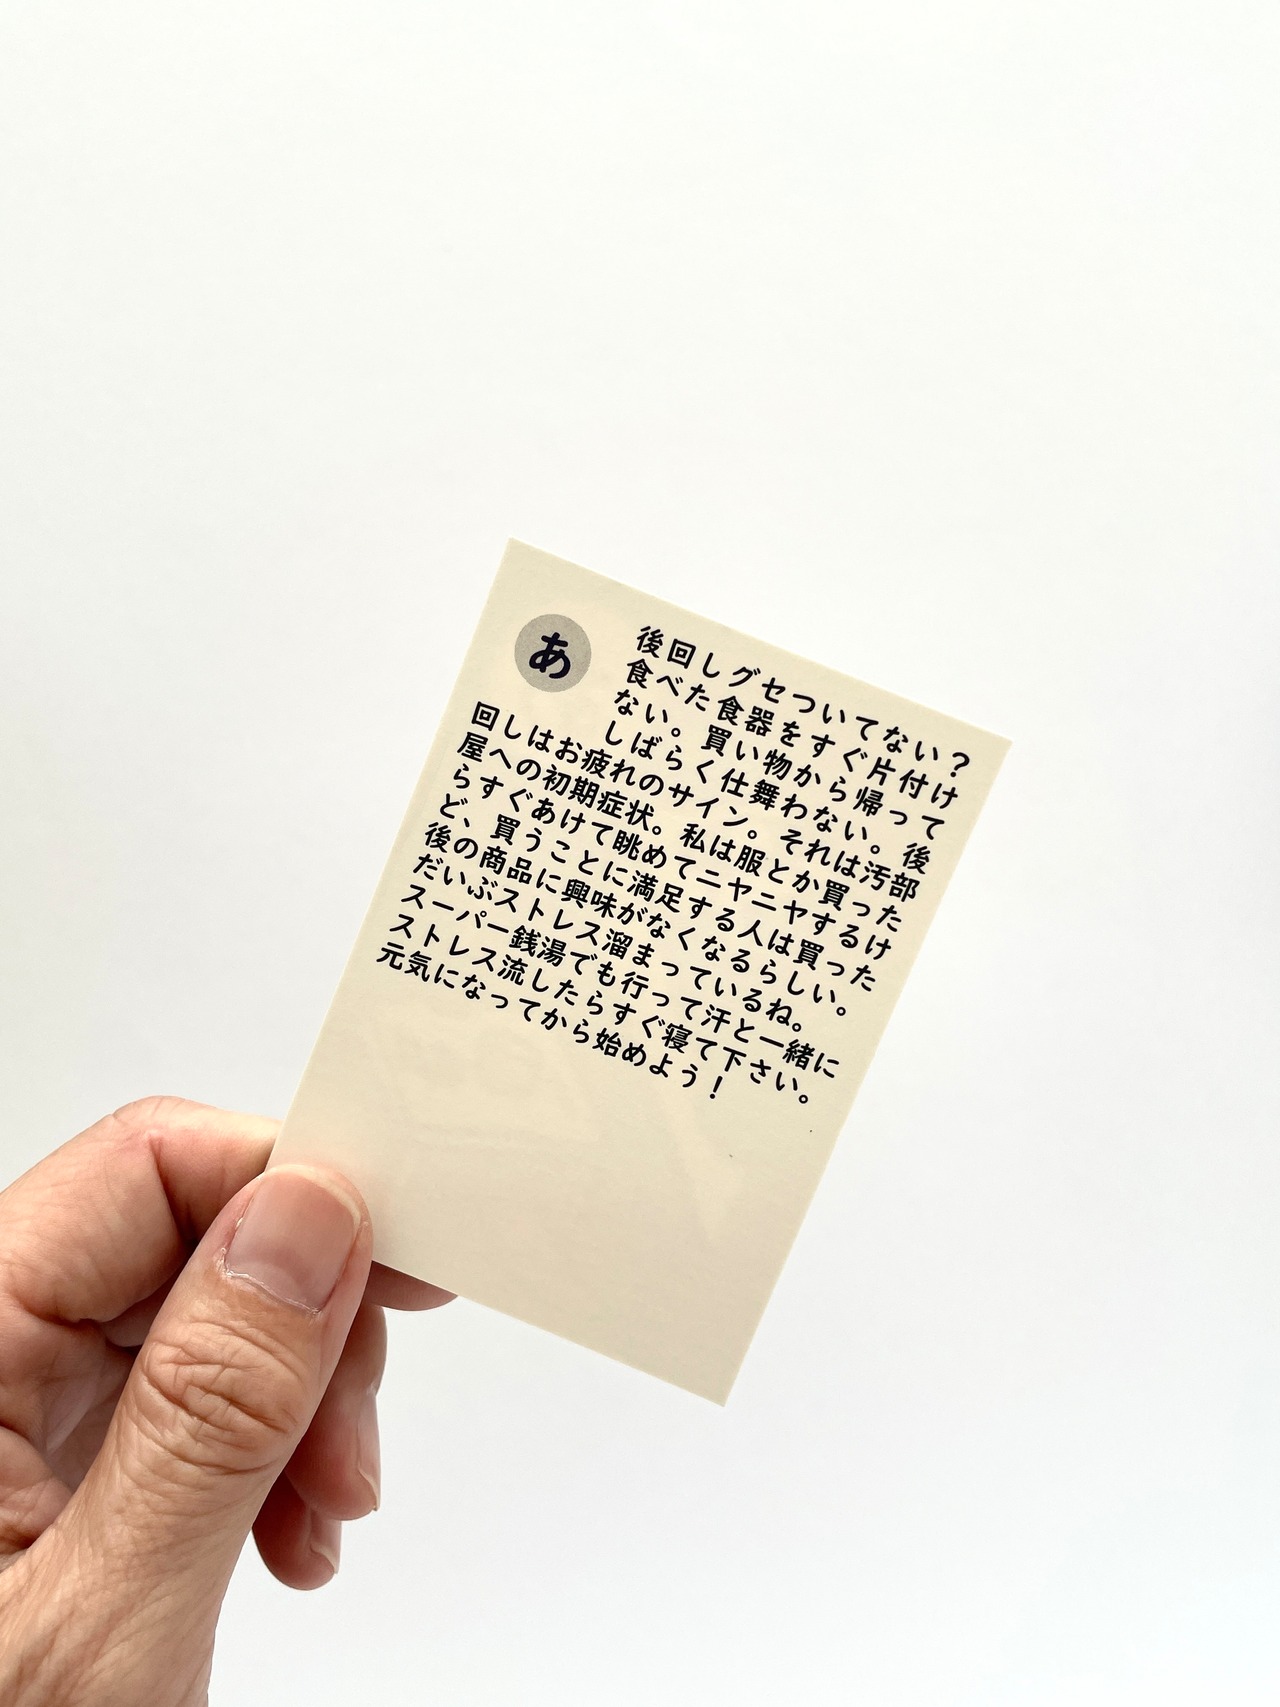 あ
後回しグセついてない？
食べた食器をすぐ片付け
ない。買い物から帰って
しばらく仕舞わない。後
回しはお疲れのサイン。それは汚部
屋への初期症状。私は服とか買った
らすぐあけて眺めてニヤニヤするけ
ど、買うことに満足する人は買った
後の商品に興味がなくなるらしい。
だいぶストレス溜まっているね。
スーパー銭湯でも行って汗と一緒に
ストレス流したらすぐ寝て下さい。
元気になってから始めよう！